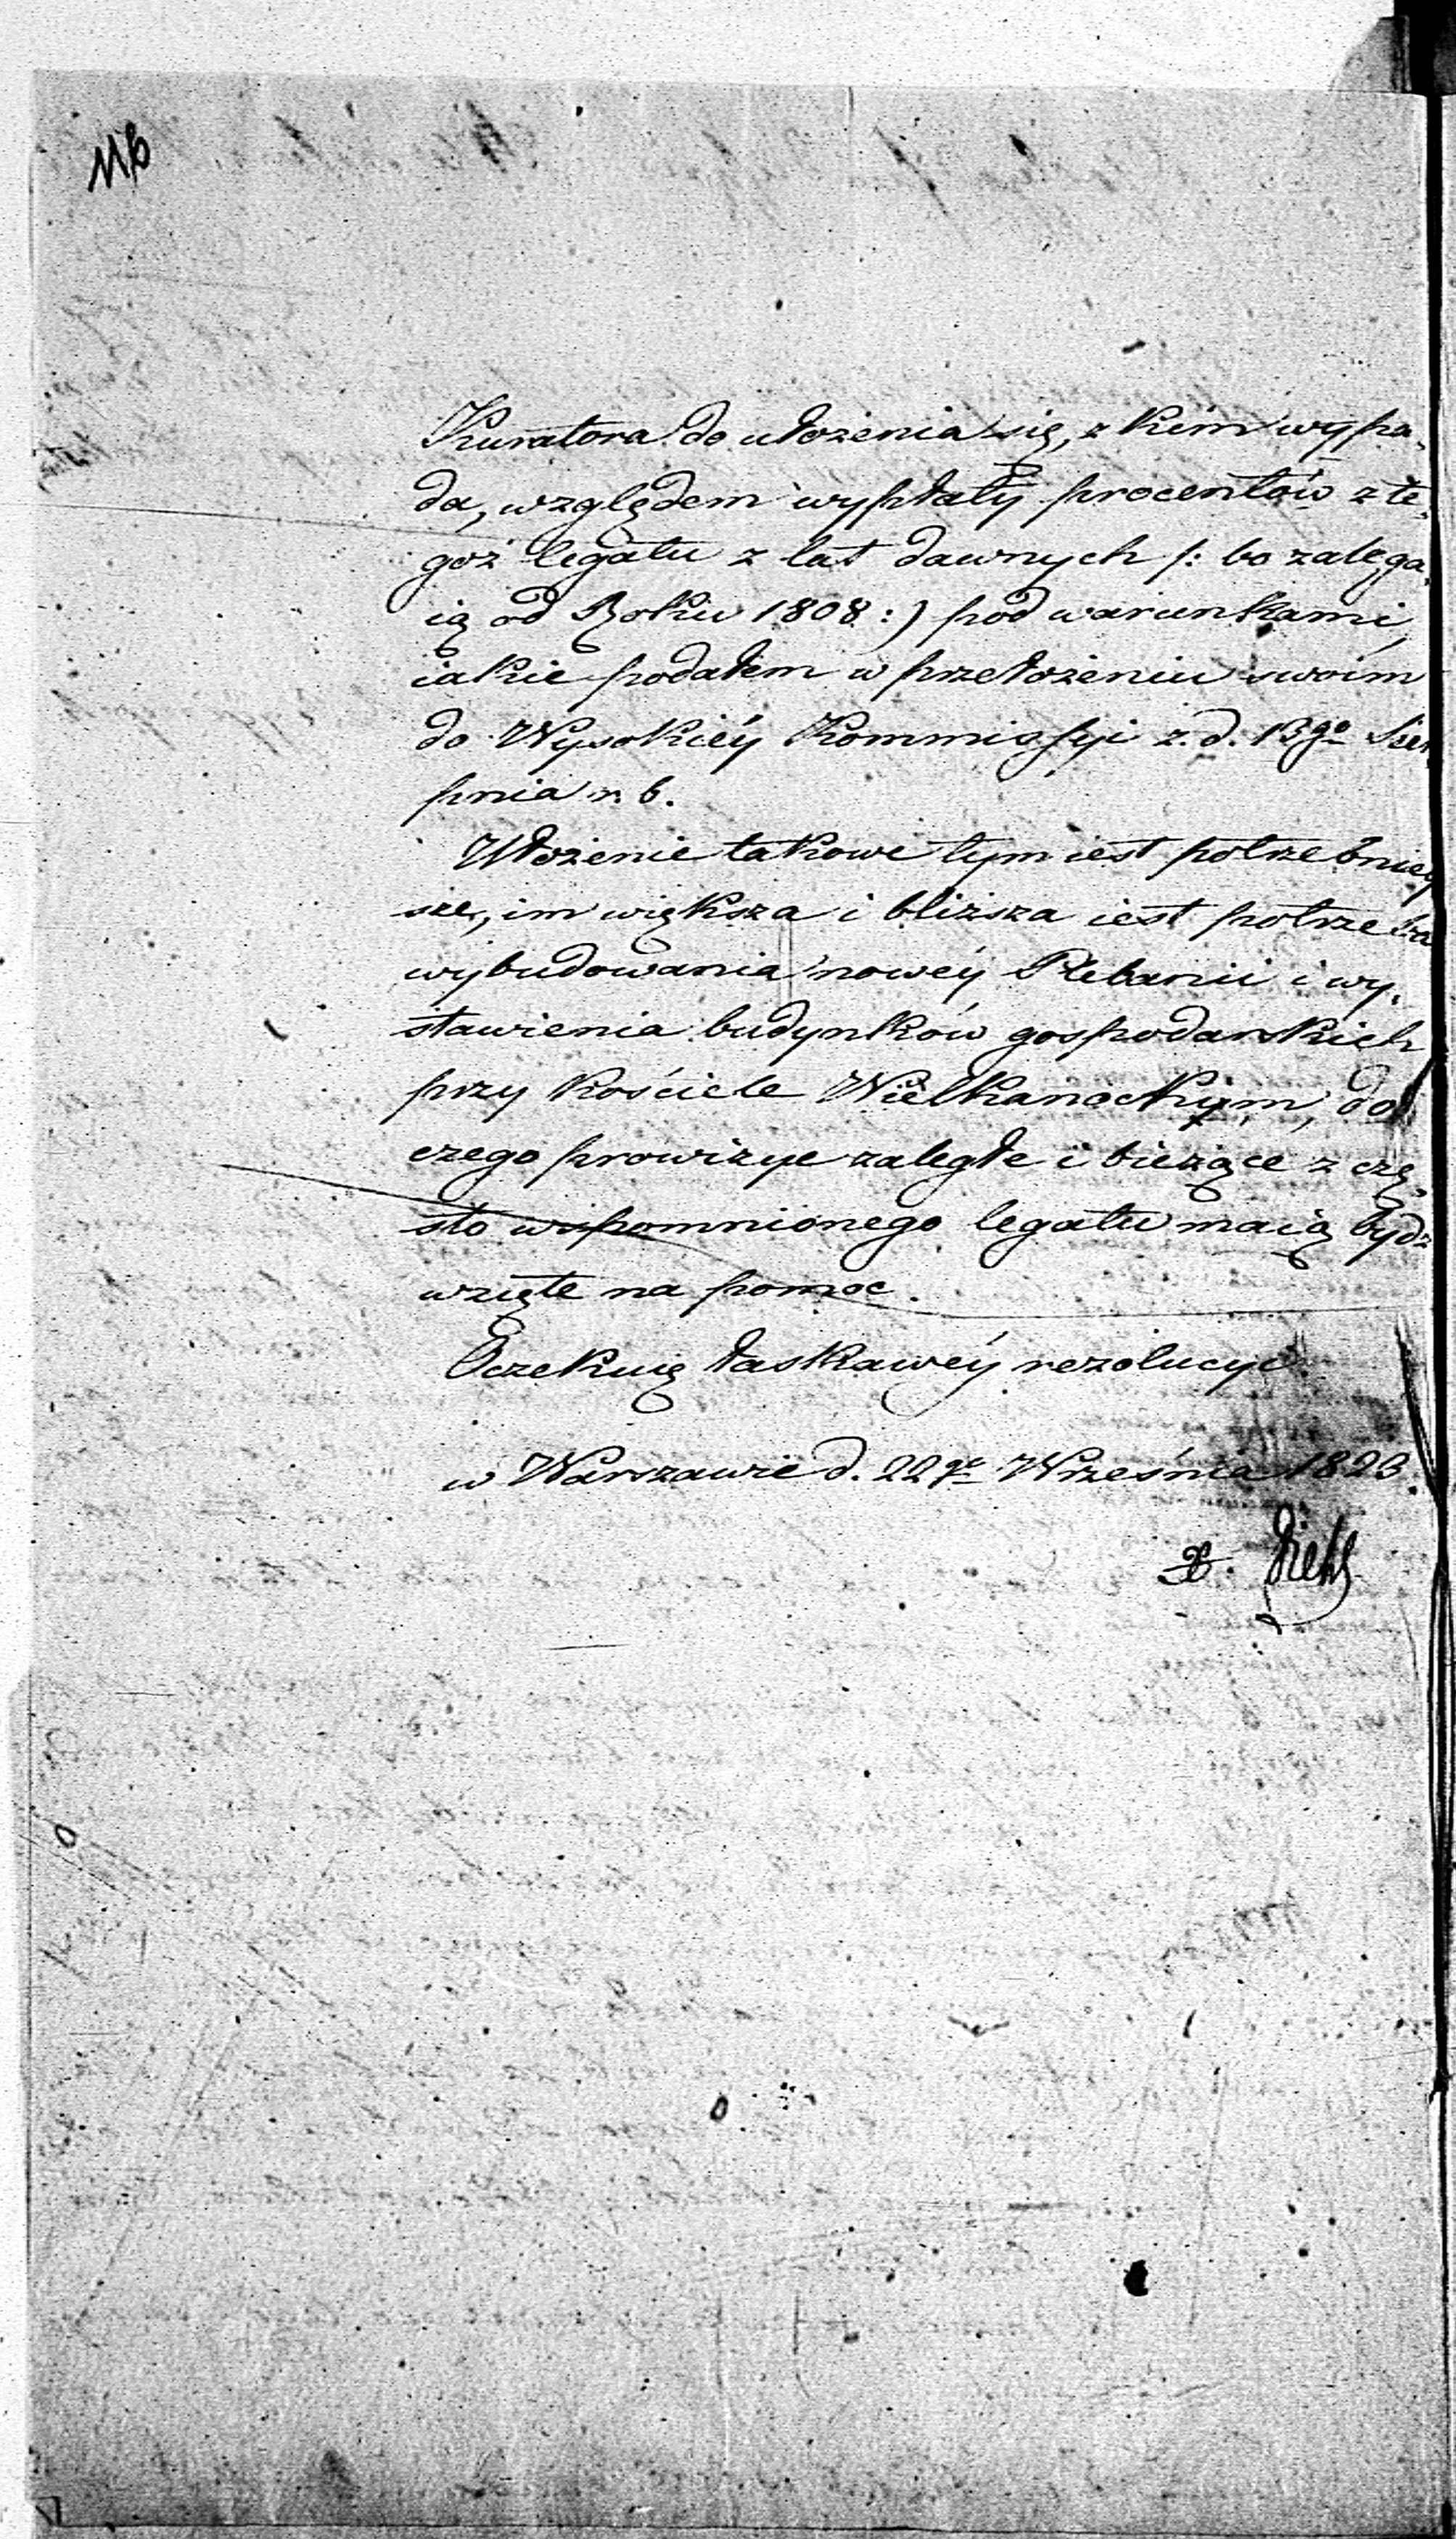 116
Kuratora do ułożenia się, z kim wypa-
da, względem wypłaty procentów z te-
goż legatu z lat dawnych /: bo zalega-
ią od Roku 1808 :) pod warunkami,
iakie podałem w przełożeniu swoim
do Wysokiéy Kommissyi z. d. 13go Sier-
pnia r. b.
Ułożenie takowe tym iest potrzebniey
sze, im większa i bliższa iest potrzeba
wybudowania nowéy Plebanii i wy-
stawienia budynków gospodarskich
przy Kościele Wielkanockim, do
czego prowizye zaległe i bieżące z czę-
sto wspomnionego legatu maią bydź
wzięte na pomoc.
Oczekuię łaskawéy rezolucyi
w Warszawie d. 22go Września 1823.
X.